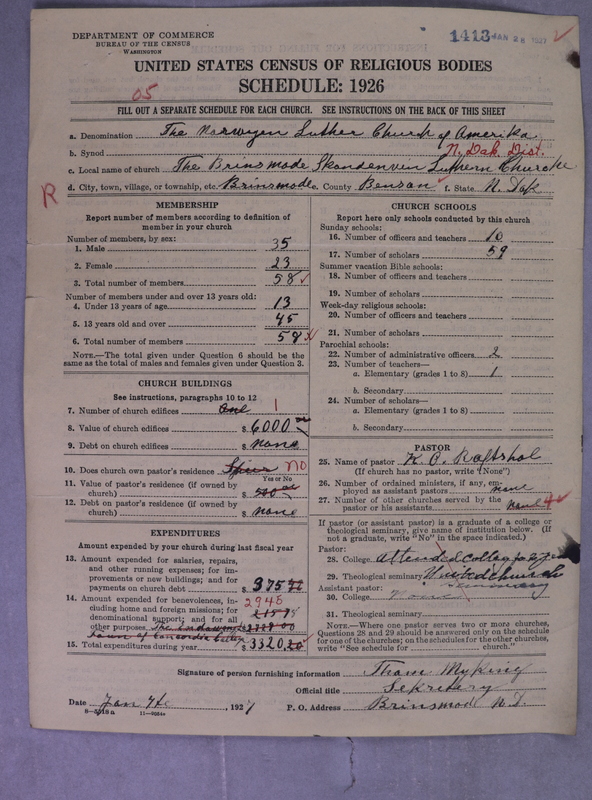 DEPARTMENT OF COMMERCE
BUREAU OF THE CENSUS
WASHINGTON
1413 JAN 28 1927
UNITED STATES CENSUS OF RELIGIOUS BODIES
SCHEDULE: 1926
05
FILL OUT A SEPARATE SCHEDULE FOR EACH CHURCH. SEE INSTRUCTIONS ON THE BACK OF THIS SHEET
a. Denomination The Norwegen Luther Church of Amerika
b. Synod N. Dak. Dist.
c. Local name of church The Brinsmode Skandenven Luthern Churche
R
d. City, town, village, or township, etc. Brinsmode e. County Benson f. State N. Dak
MEMBERSHIP
Report number of members according to definition of member in your church
Number of members, by sex:
1. Male 35
2. Female 23
3. Total number of members 58
Number of members under and over 13 years old:
4. Under 13 years of age 13
5. 13 years old and over 45
6. Total number of members 58
NOTE.—The total given under Question 6 should be the same as the total of males and females given under Question 3.
CHURCH BUILDINGS
See instructions, paragraphs 10 to 12
7. Number of church edifices One 1
8. Value of church edifices $ 6000 00
9. Debt on church edifices $ none
10. Does church own pastor's residence no
Yes or No
11. Value of pastor's residence (if owned by church) $
12. Debt on pastor's residence (if owned by church) $ none
EXPENDITURES
Amount expended by your church during last fiscal year
13. Amount expended for salaries, repairs, and other running expenses; for improvements or new buildings; and for payments on church debt $ 375
14. Amount expended for benevolences, including home and foreign missions; for denominational support; and for all other purposes 2945
15. Total expenditures during year $ 3320
CHURCH SCHOOLS
Report here only schools conducted by this church
Sunday schools:
16. Number of officers and teachers 10
17. Number of scholars 59
Summer vacation Bible schools:
18. Number of officers and teachers
19. Number of scholars
Week-day religious schools:
20. Number of officers and teachers
21. Number of scholars
Parochial schools:
22. Number of administrative officers 2
23. Number of teachers—
a. Elementary (grades 1 to 8) 1
b. Secondary
24. Number of scholars—
a. Elementary (grades 1 to 8)
b. Secondary
PASTOR
25. Name of pastor K. O. Raftshol
(If church has no pastor, write "None")
26. Number of ordained ministers, if any, employed as assistant pastors none
27. Number of other churches served by the pastor or his assistants 4
If pastor (or assistant pastor) is a graduate of a college or theological seminary, give name of institution below. (If not a graduate, write "No" in the space indicated.)
Pastor:
28. College attended college
29. Theological seminary United church
Assistant pastor:
30. College
31. Theological seminary
NOTE.—Where one pastor serves two or more churches, Questions 28 and 29 should be answered only on the schedule for one of the churches; on the schedules for the other churches, write "See schedule for ... church."
Signature of person furnishing information Thom Myking
Official title Sekretery
Date Jan 4th, 1927 P. O. Address Brinsmod N. D.